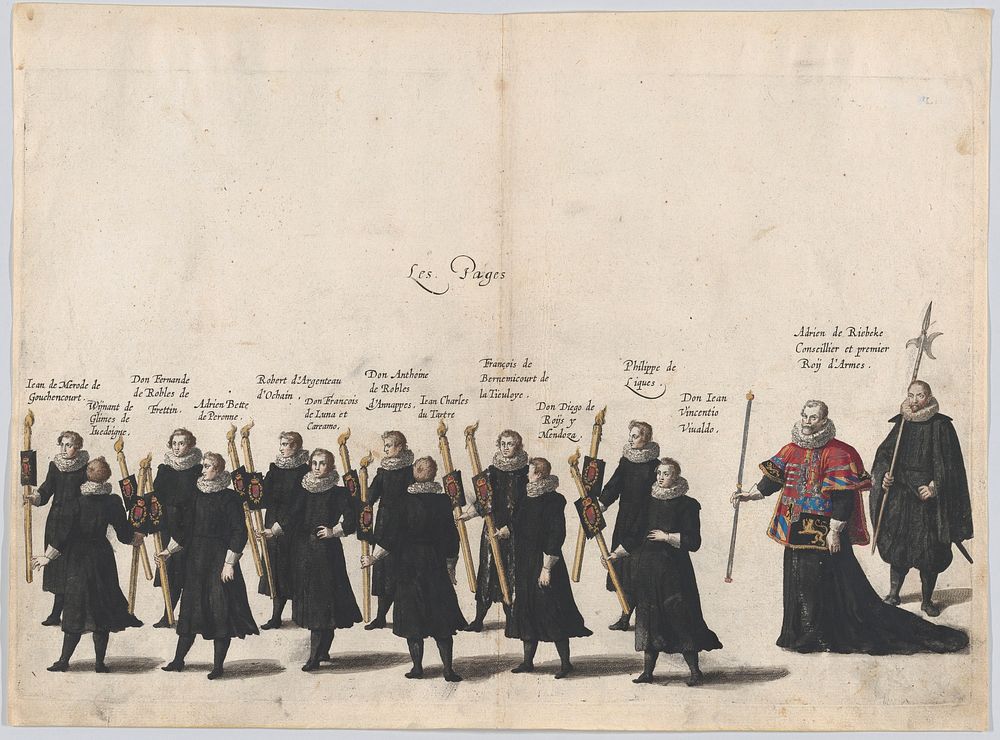 Les. Pages
Iean de Merode de
Gouchencourt.
Wijnant de
Glimes de
Iuedoigne.
Don Fernande
de Robles de
Frettin.
Adrien Bette
de Peronne.
Robert d'Argenteau
d'Ochain.
Don François
de Luna et
Carcamo.
Don Anthoine
de Robles
d'Annappes.
Iean Charles
du Tartre
François de
Bernemicourt de
la Tieuloye.
Don Diego de
Roijs y
Mendoza.
Philippe de
Liques.
Don Iean
Vincentio
Viualdo.
Adrien de Riebeke
Conseillier et premier
Roij d'Armes.